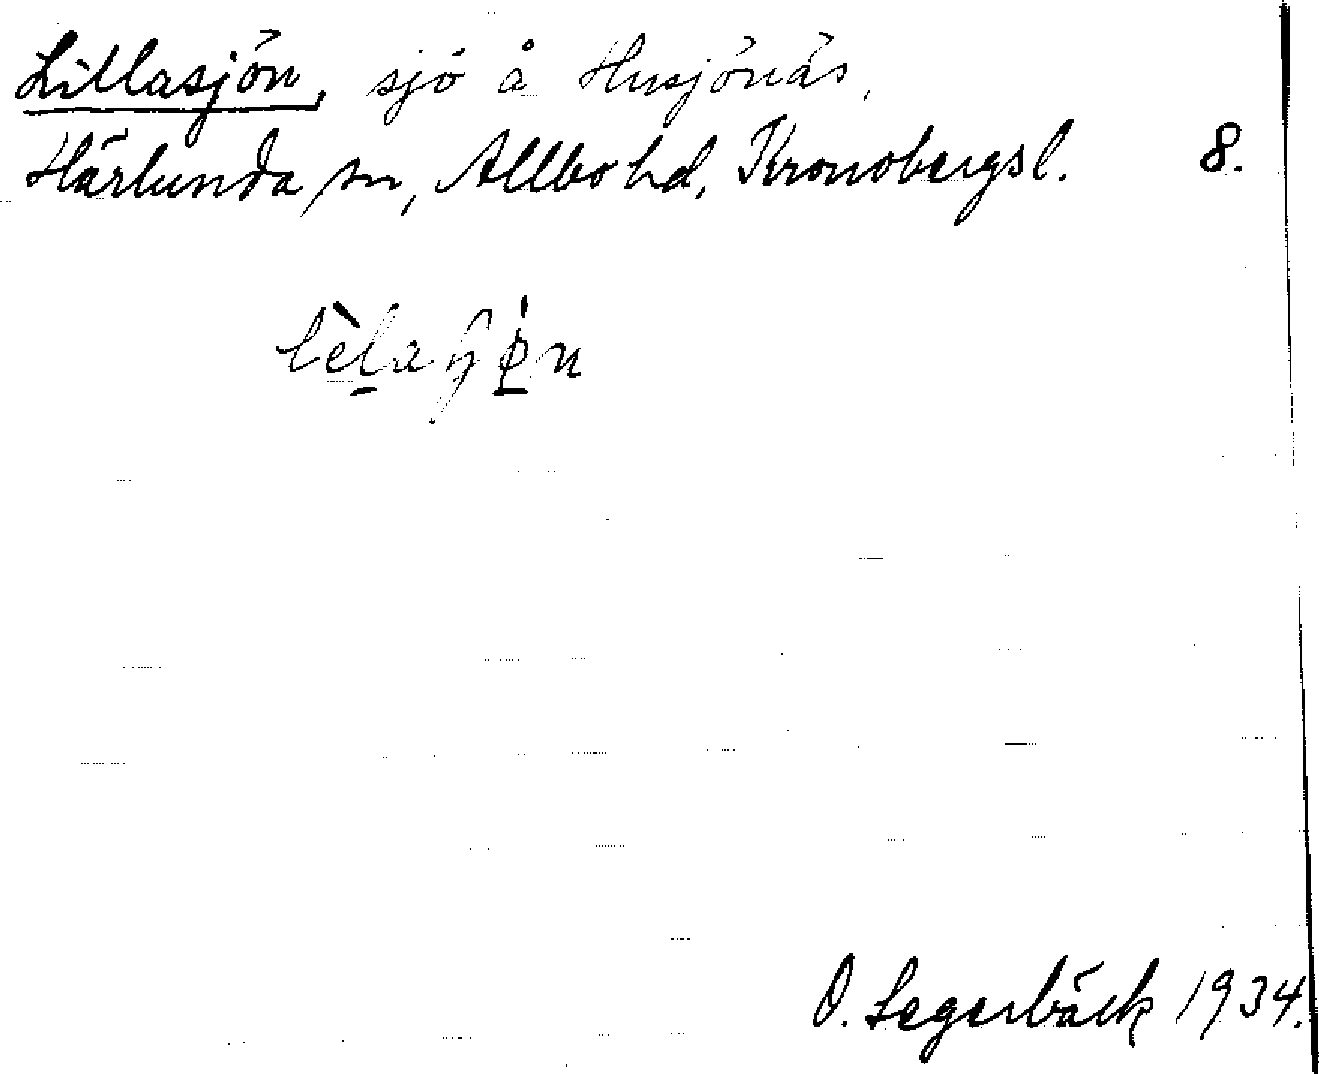 Lillasjön, sjö å Husjönäs,
Härlunda sn, Allbo hd, Kronobergsl. 8.
O. Segerbäck 1934.